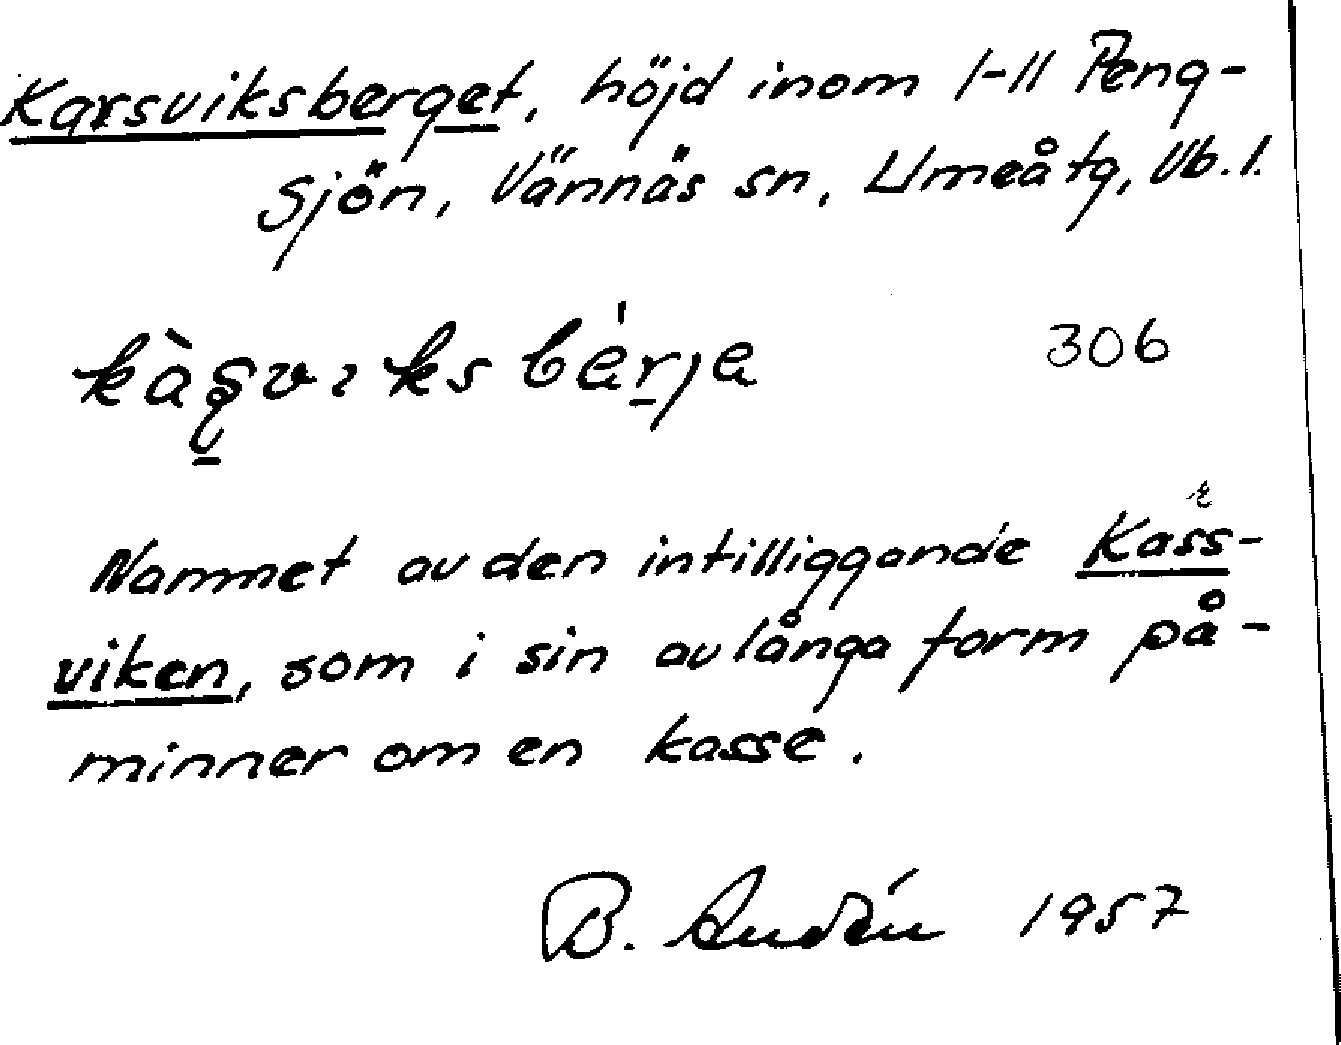 Karsviksberget, höjd inom I-II Peng-
sjön, Vännäs sn, Umeå tg, Vb. l.
306
Namnet av den intilliggande Kass-
viken, som i sin avlånga form på-
minner om en kasse.
B. Audén 1957